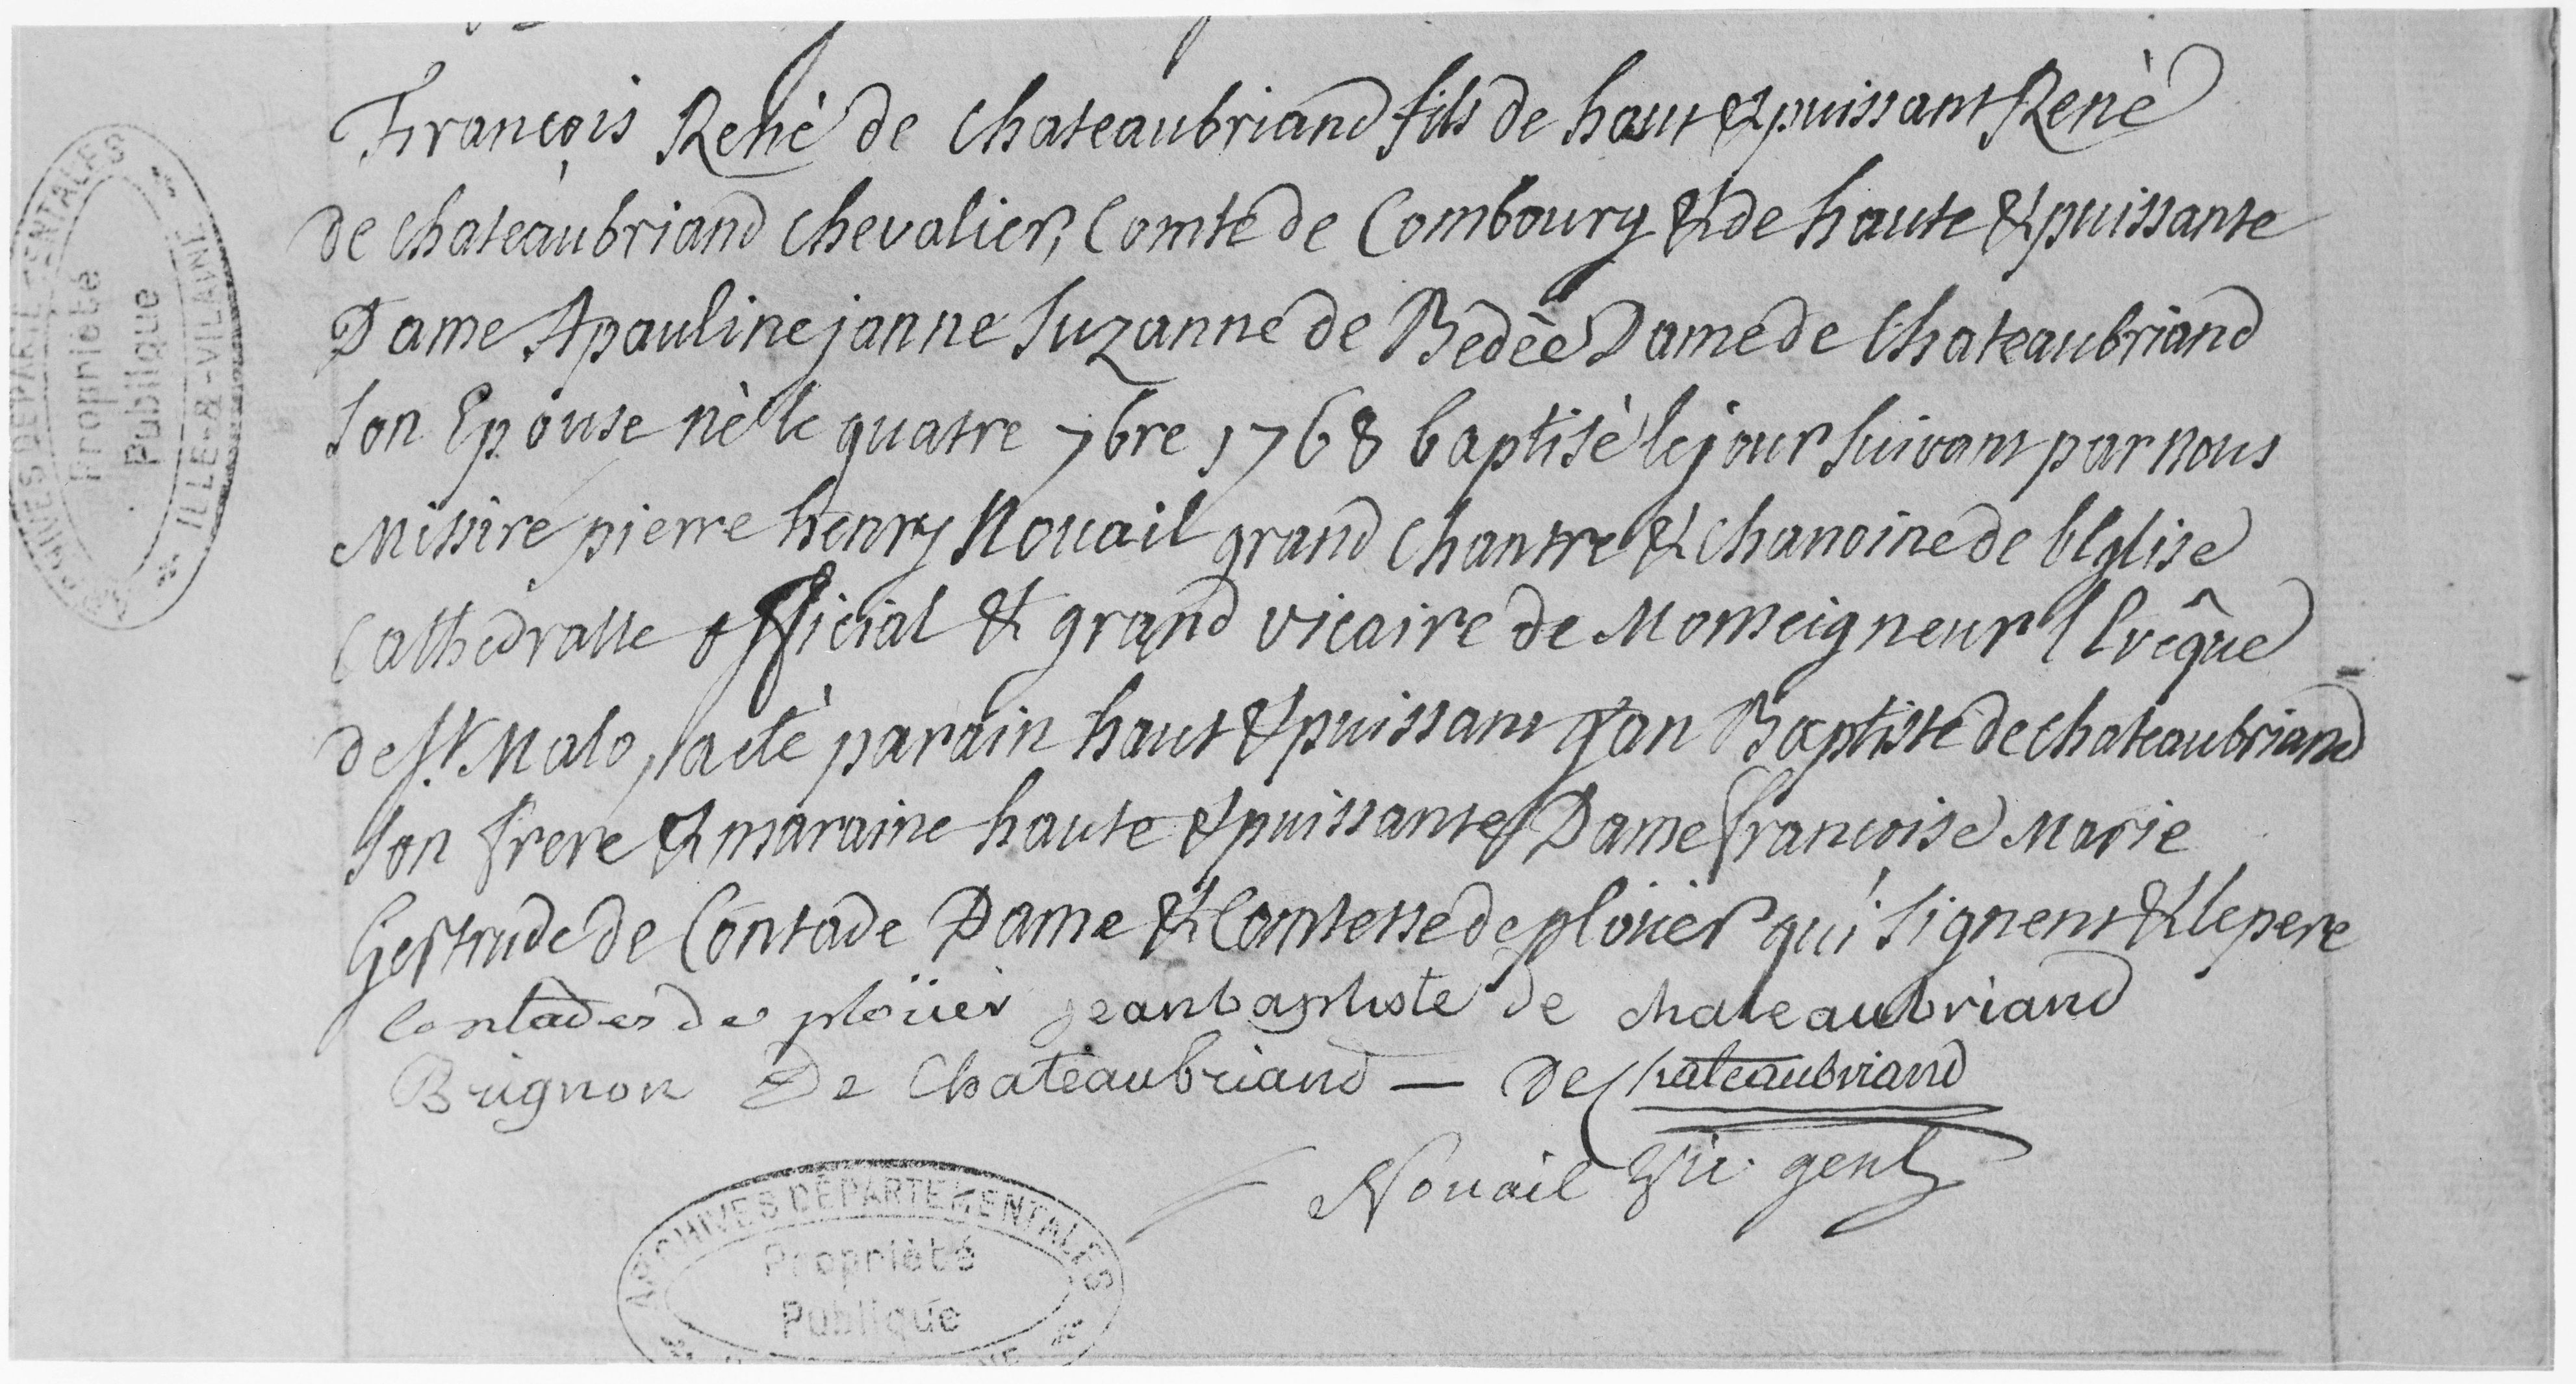 François Renè de Chateaubriand fils de haut & puissant Renè
de chateaubriand chevalier, Comte de Combourg & de haute & puissante
Dame Apauline janne Suzanne de Bedèe Dame de Chateaubriand
son Epouse nè le quatre 7bre 1768 baptisè le jour suivant par nous
Missire pierre henry Nouail grand Chantre & Chanoine de l'Eglise
Cathedralle official & grand vicaire de Monseigneur l'Evêque
de St Malo, a etè parain haut & puissant jan Baptiste de chateaubriand
son frere & maraine haute & puissante Dame françoise Marie
Gertrude de Contade Dame & Comtesse de ploüer qui signent & le pere
Contades de ploüer jean baptiste de chateaubriand
Brignon De Chateaubriand — De Chateaubriand
Nouail Vic. genl
ARCHIVES DÉPARTEMENTALES
Propriété
Publique
ILLE-&-VILAINE
ARCHIVES DÉPARTEMENTALES
Propriété
Publique